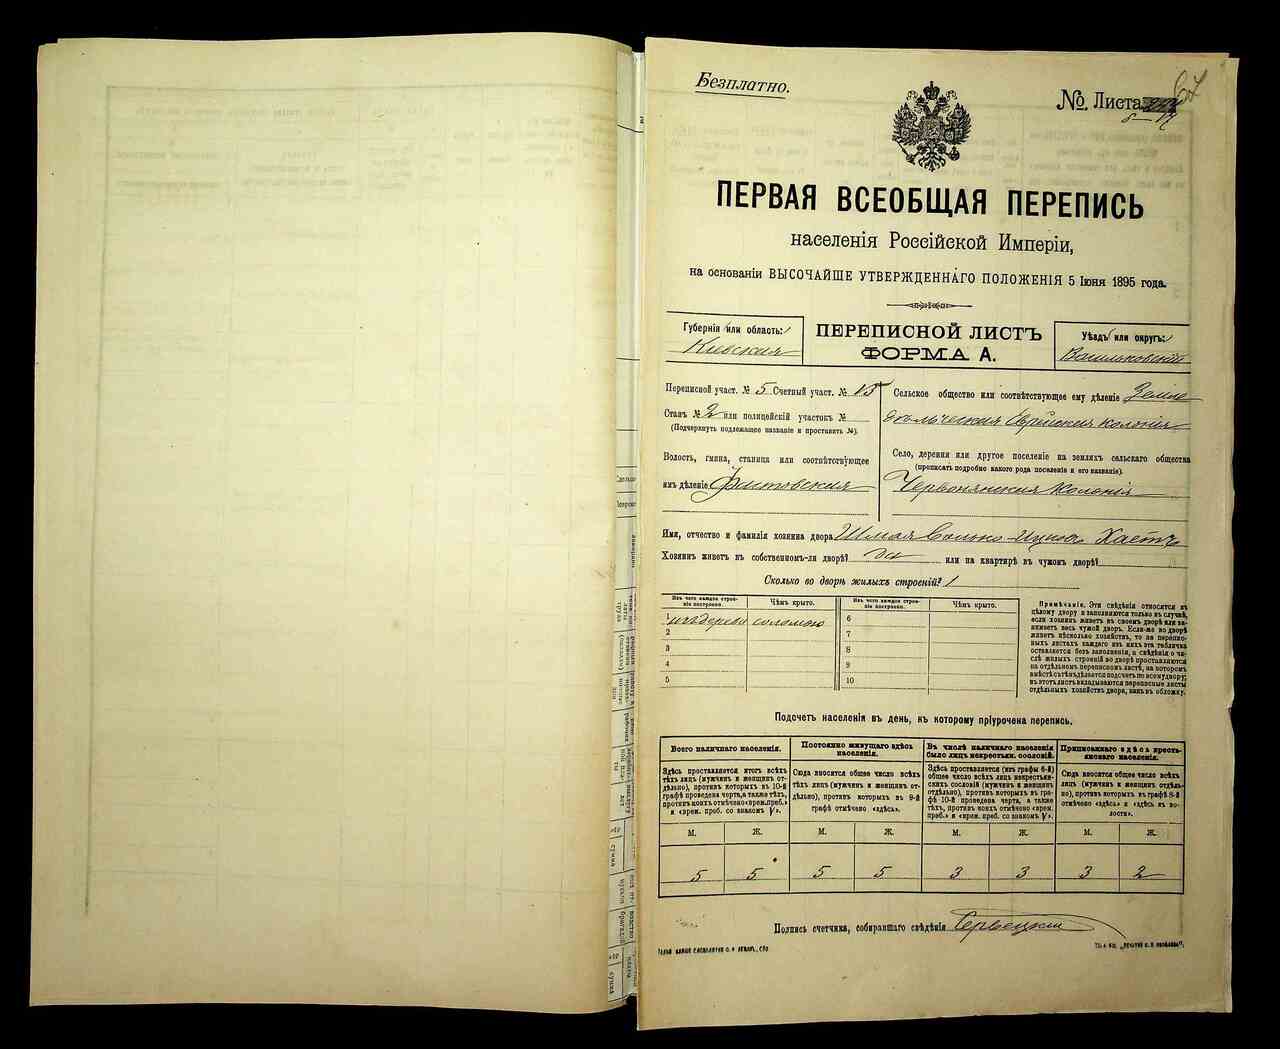 Безплатно.
№ Листа
67
ПЕРВАЯ ВСЕОБЩАЯ ПЕРЕПИСЬ
населенія Россійской Имперіи,
на основаніи ВЫСОЧАЙШЕ УТВЕРЖДЕННАГО ПОЛОЖЕНІЯ 5 Іюня 1895 года.
Губернія или область:
Кіевская
ПЕРЕПИСНОЙ ЛИСТЪ
ФОРМА А.
Уѣздъ или округъ:
Васильковскій
Переписной участ. № 5 Счетный участ. № 15
Станъ № 2 или полицейскій участокъ №
(Подчеркнуть подлежащее названіе и проставить №).
Волость, гмина, станица или соотвѣтствующее
имъ дѣленіе Фастовская
Сельское общество или соотвѣтствующее ему дѣленіе Земле
дѣльческая Еврейская колонія
Село, деревня или другое поселеніе на земляхъ сельскаго общества
(прописать подробно какого рода поселеніе и его названіе).
Червонянская Колонія
Имя, отчество и фамилія хозяина двора Шмая Волько-Ицковъ
Хозяинъ живетъ въ собственномъ-ли дворѣ? да или на квартирѣ въ чужомъ дворѣ?
Сколько во дворѣ жилыхъ строеній? 1
Изъ чего каждое строеніе построено. Чѣмъ крыто. Изъ чего каждое строеніе построено. Чѣмъ крыто.
1 изъ дерева соломою 6
2 7
3 8
4 9
5 10
Примѣчаніе. Эти свѣдѣнія относятся къ
цѣлому двору и заполняются только въ случаѣ,
если хозяинъ живетъ въ своемъ дворѣ или занимаетъ весь чужой дворъ. Если-же во дворѣ
живетъ нѣсколько хозяйствъ, то на переписныхъ листахъ каждаго изъ нихъ эта табличка
оставляется безъ заполненія, а свѣдѣнія о числѣ жилыхъ строеній во дворѣ проставляются
на отдѣльномъ переписномъ листѣ, на которомъ
вмѣстѣ съ тѣмъ дѣлается подсчетъ по всему двору;
въ этотъ листъ вкладываются переписные листы
отдѣльныхъ хозяйствъ двора, какъ въ обложку.
Подсчетъ населенія въ день, къ которому пріурочена перепись.
Всего наличнаго населенія.
Здѣсь проставляется итогъ всѣхъ
тѣхъ лицъ (мужчинъ и женщинъ отдѣльно), противъ которыхъ въ 10-й
графѣ проведена черта, а также тѣхъ,
противъ коихъ отмѣчено «врем. преб.»
и «врем. преб. со знакомъ V».
Постоянно живущаго здѣсь
населенія.
Сюда вносится общее число всѣхъ
тѣхъ лицъ (мужчинъ и женщинъ отдѣльно), противъ которыхъ въ 9-й
графѣ отмѣчено «здѣсь».
Въ числѣ наличнаго населенія
было лицъ некрестьян. сословій.
Здѣсь проставляется (изъ графы 6-й)
общее число всѣхъ лицъ некрестьянскихъ сословій (мужчинъ и женщинъ
отдѣльно), противъ которыхъ въ графѣ 10-й проведена черта, а также
тѣхъ, противъ коихъ отмѣчено «врем.
преб.» и «врем. преб. со знакомъ V».
Приписаннаго здѣсь крестьянскаго населенія.
Сюда вносится общее число всѣхъ
лицъ (мужчинъ и женщинъ отдѣльно), противъ которыхъ въ графѣ 8-й
отмѣчено «здѣсь» и «здѣсь въ волости».
М. Ж. М. Ж. М. Ж. М. Ж.
5 5 5 5 3 3 3 2
Подпись счетчика, собиравшаго свѣдѣнія